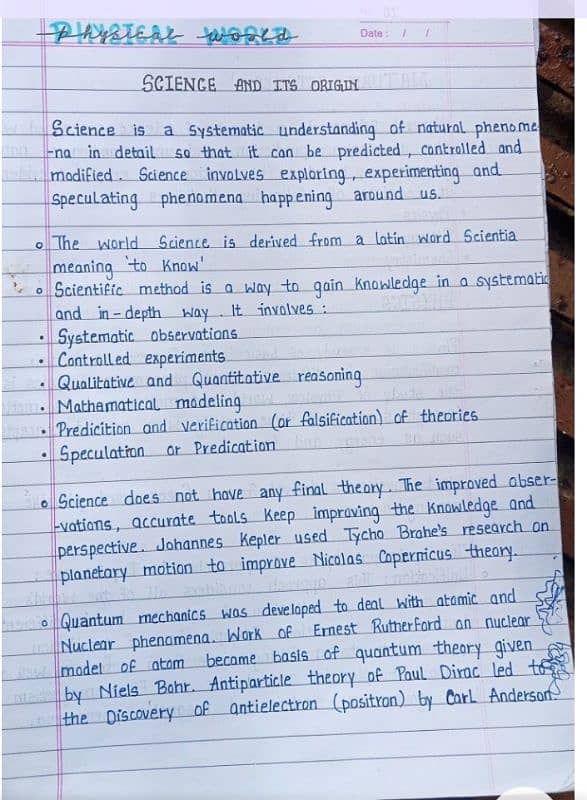 PHYSICAL WORLD
Physical world
Date: / /
SCIENCE AND ITS ORIGIN
Science is a systematic understanding of natural phenome-
-na in detail so that it can be predicted, controlled and
modified. Science involves exploring, experimenting and
speculating phenomena happening around us.
The world Science is derived from a latin word Scientia
meaning 'to know'
Scientific method is a way to gain knowledge in a systematic
and in-depth way. It involves:
• Systematic observations
• Controlled experiments
• Qualitative and Quantitative reasoning
• Mathamatical modeling
• Predicition and verification (or falsification) of theories
• Speculation or Predication
Science does not have any final theory. The improved obser-
-vations, accurate tools keep improving the knowledge and
perspective. Johannes Kepler used Tycho Brahe's research on
planetary motion to improve Nicolas Copernicus theory.
Quantum mechanics was developed to deal with atomic and
Nuclear phenomena. Work of Ernest Rutherford on nuclear
model of atom became basis of quantum theory given
by Niels Bohr. Antiparticle theory of Paul Dirac led to
the Discovery of antielectron (positron) by Carl Anderson